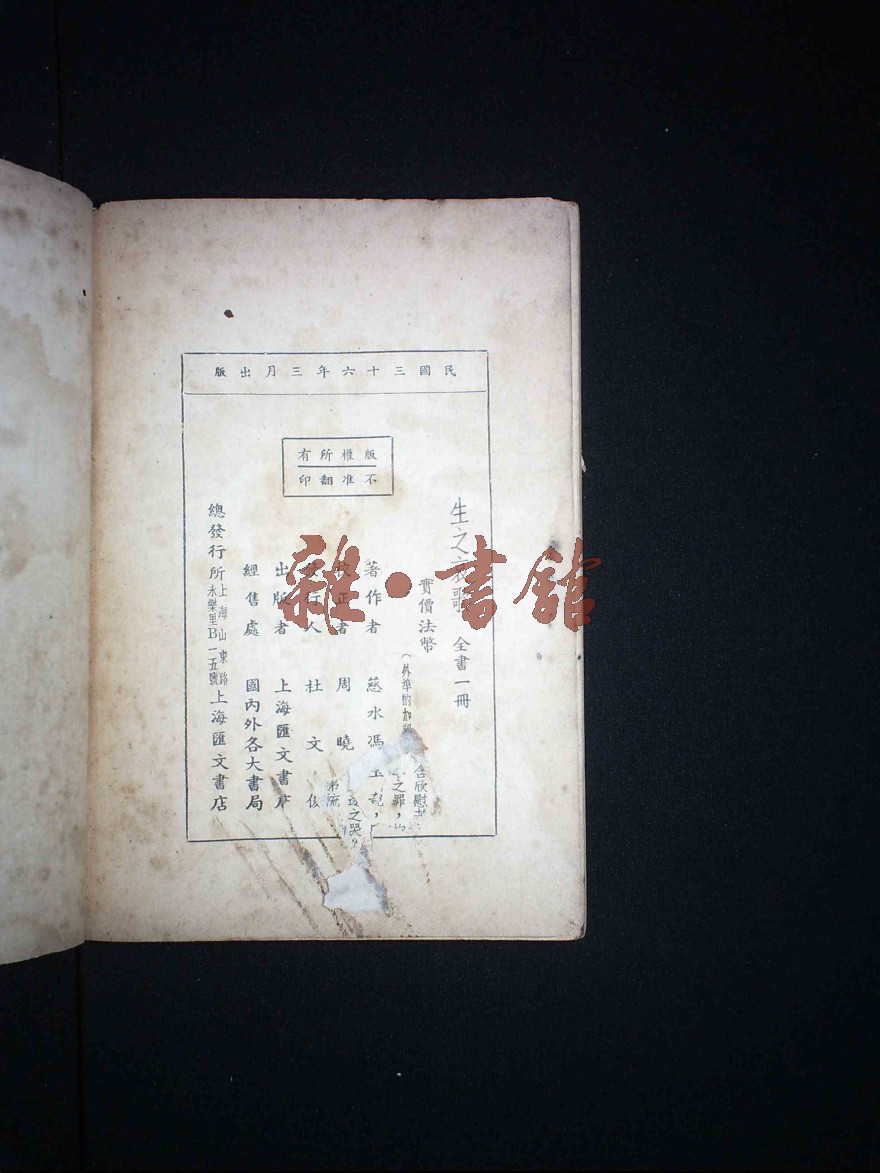 民國三十六年三月出版
版權所有
不准翻印
生之哀歌 全書一冊
實價法幣
(外埠酌加
著作者 慈水馮玉
校正者 周曉
發行人 杜文
出版者 上海匯文書店
經售處 國內外各大書局
總發行所 上海山東路永樂里B一五號 上海匯文書店
含欣慰
之罪，
之哭？
雜·書館